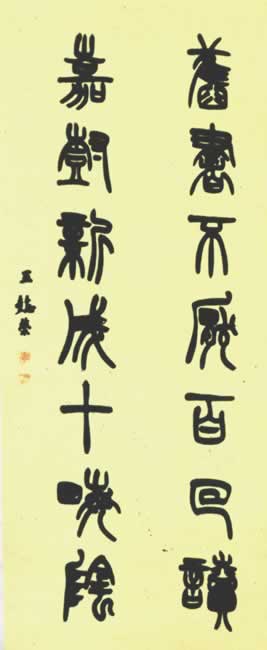 舊書不厭百回讀
嘉樹新成十畝陰
王懿榮